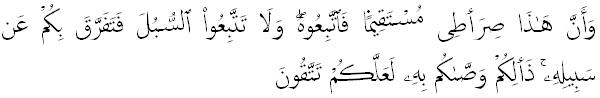 وَأَنَّ هَـٰذَا صِرَٲطِى مُسۡتَقِيمً۬ا فَٱتَّبِعُوهُ‌ۖ وَلَا تَتَّبِعُواْ ٱلسُّبُلَ فَتَفَرَّقَ بِكُمۡ عَن
سَبِيلِهِۦ‌ۚ ذَٲلِكُمۡ وَصَّٮٰكُم بِهِۦ لَعَلَّڪُمۡ تَتَّقُونَ